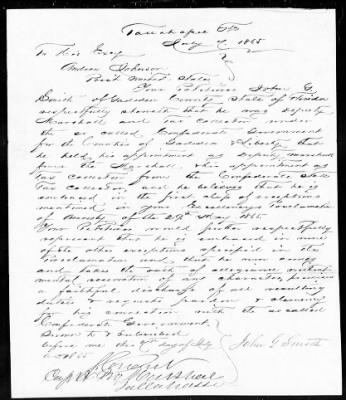 Tallahassee Fla
July 7 1865
To His Excy
Andrew Johnson
Prest United States
Your Petitioner John G.
Smith of Gadsden County State of Florida
respectfully sheweth that he was Deputy
Marshall and Tax Collector under
the so called Confederate Government
for the Counties of Gadsden & Liberty that
he held his appointment as Deputy Marshall
from the Marshall, his appointment as
tax collector from the Confederate States
Tax Collector, and he believes that he is
embraced in the first class of exceptions
mentioned in your Excellencys Proclamation
of Amnesty of the 29th May 1865.
Your Petitioner would further respectfully
represent that he is embraced in none
of the other exceptions specified in the
Proclamation and that he now comes
and takes the oath of allegiance without
mental reservation of any character, promises
a faithful discharge of all resulting
duties & requests pardon & clemency
for his connection with the so called
Confederate Government.
Sworn to & subscribed
before me this 7th day of July John G Smith
1865
Capt & Pro Marshal
Tallahassee